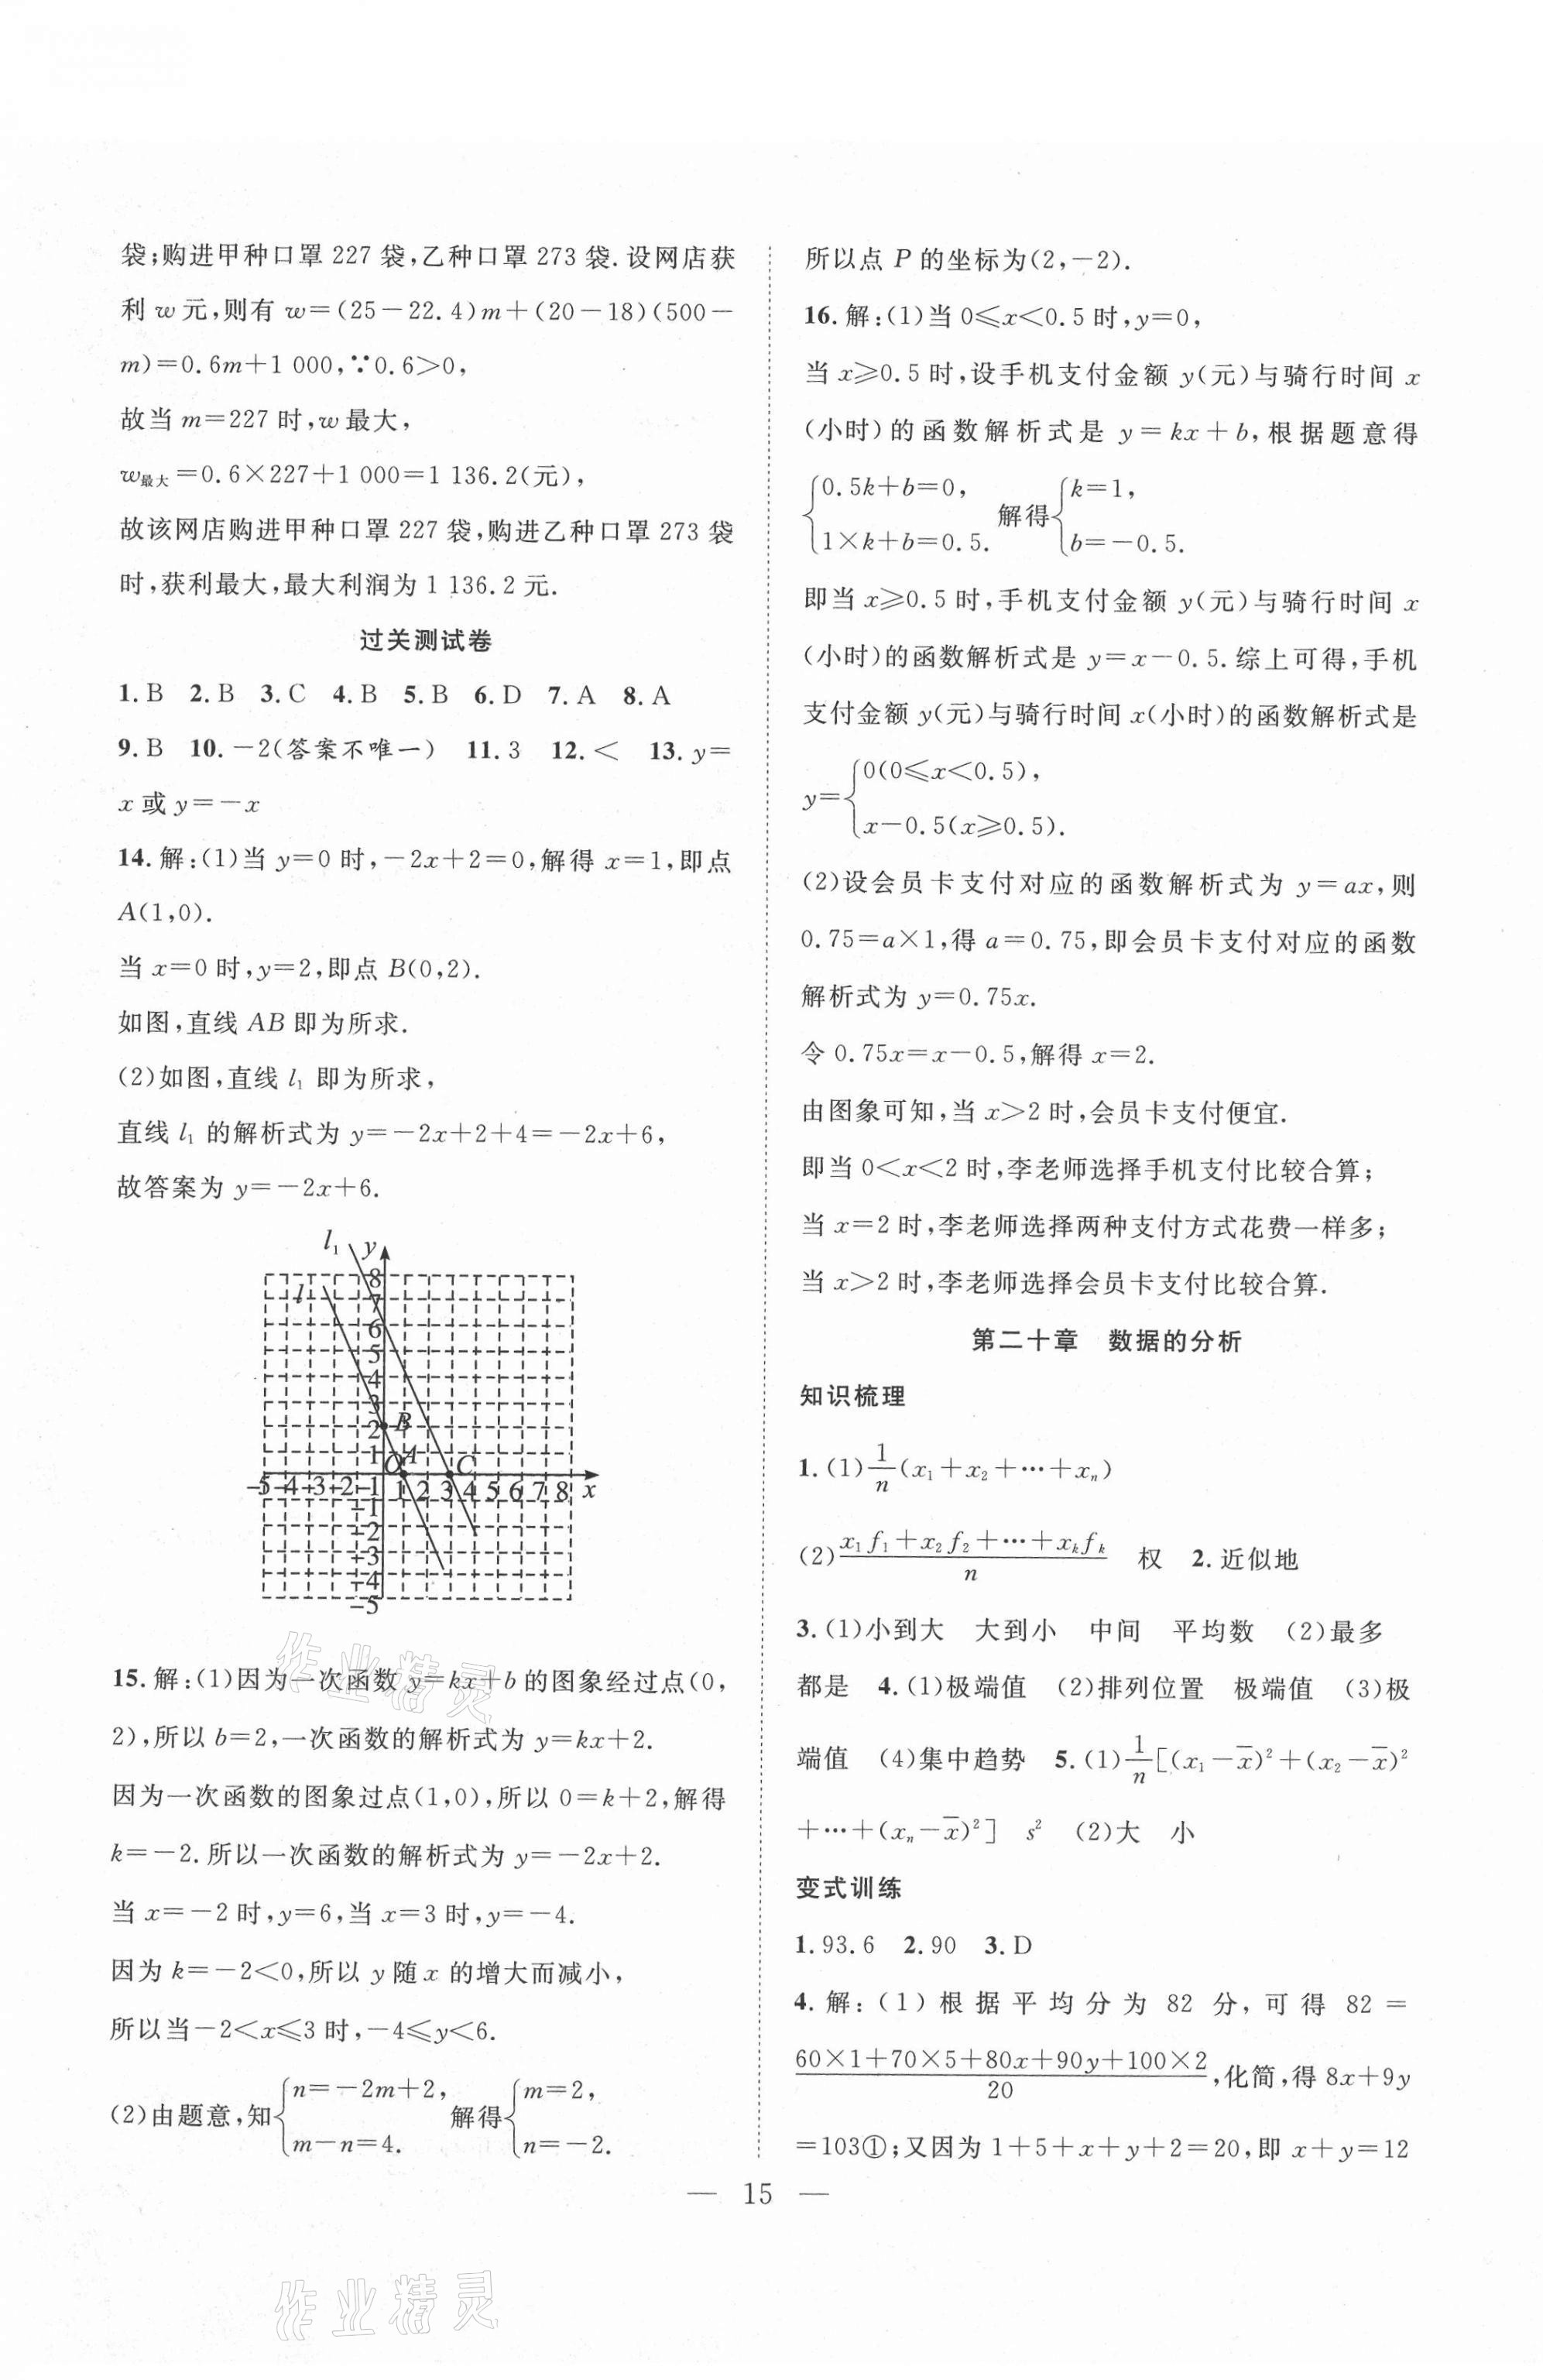 袋;购进甲种口罩 227 袋,乙种口罩 273 袋. 设网店获
利 w 元,则有 w=(25-22.4)m+(20-18)(500-
m)=0.6m+1 000,∵0.6>0,
故当 m=227 时,w 最大,
w最大=0.6×227+1 000=1 136.2(元),
故该网店购进甲种口罩 227 袋,购进乙种口罩 273 袋
时,获利最大,最大利润为 1 136.2 元.
过关测试卷
1.B 2.B 3.C 4.B 5.B 6.D 7.A 8.A
9.B 10.-2(答案不唯一) 11.3 12.< 13.y=
x 或 y=-x
14.解:(1)当 y=0 时,-2x+2=0,解得 x=1,即点
A(1,0).
当 x=0 时,y=2,即点 B(0,2).
如图,直线 AB 即为所求.
(2)如图,直线 l₁ 即为所求,
直线 l₁ 的解析式为 y=-2x+2+4=-2x+6,
故答案为 y=-2x+6.
l₁ y
8
l 7
6
5
4
3
2 B
1 O A C
-5-4-3-2-1 1 2 3 4 5 6 7 8 x
-1
-2
-3
-4
-5
15.解:(1)因为一次函数 y=kx+b 的图象经过点(0,
2),所以 b=2,一次函数的解析式为 y=kx+2.
因为一次函数的图象过点(1,0),所以 0=k+2,解得
k=-2.所以一次函数的解析式为 y=-2x+2.
当 x=-2 时,y=6,当 x=3 时,y=-4.
因为 k=-2<0,所以 y 随 x 的增大而减小,
所以当-2<x⩽3 时,-4⩽y<6.
(2)由题意,知{n=-2m+2, m-n=4. 解得{m=2, n=-2.
所以点 P 的坐标为(2,-2).
16.解:(1)当 0⩽x<0.5 时,y=0,
当 x⩾0.5 时,设手机支付金额 y(元)与骑行时间 x
(小时)的函数解析式是 y=kx+b,根据题意得
{0.5k+b=0, 1×k+b=0.5. 解得{k=1, b=-0.5.
即当 x⩾0.5 时,手机支付金额 y(元)与骑行时间 x
(小时)的函数解析式是 y=x-0.5.综上可得,手机
支付金额 y(元)与骑行时间 x(小时)的函数解析式是
y={0(0⩽x<0.5), x-0.5(x⩾0.5).
(2)设会员卡支付对应的函数解析式为 y=ax,则
0.75=a×1,得 a=0.75,即会员卡支付对应的函数
解析式为 y=0.75x.
令 0.75x=x-0.5,解得 x=2.
由图象可知,当 x>2 时,会员卡支付便宜.
即当 0<x<2 时,李老师选择手机支付比较合算;
当 x=2 时,李老师选择两种支付方式花费一样多;
当 x>2 时,李老师选择会员卡支付比较合算.
第二十章 数据的分析
知识梳理
1.(1)1/n(x₁+x₂+⋯+xₙ)
(2)(x₁f₁+x₂f₂+⋯+xₖfₖ)/n 权 2.近似地
3.(1)小到大 大到小 中间 平均数 (2)最多
都是 4.(1)极端值 (2)排列位置 极端值 (3)极
端值 (4)集中趋势 5.(1)1/n[(x₁-x̄)²+(x₂-x̄)²
+⋯+(xₙ-x̄)²] s² (2)大 小
变式训练
1.93.6 2.90 3.D
4.解:(1)根据平均分为 82 分,可得 82=
(60×1+70×5+80x+90y+100×2)/20,化简,得 8x+9y
=103①;又因为 1+5+x+y+2=20,即 x+y=12
— 15 —
作业精灵
作业精灵